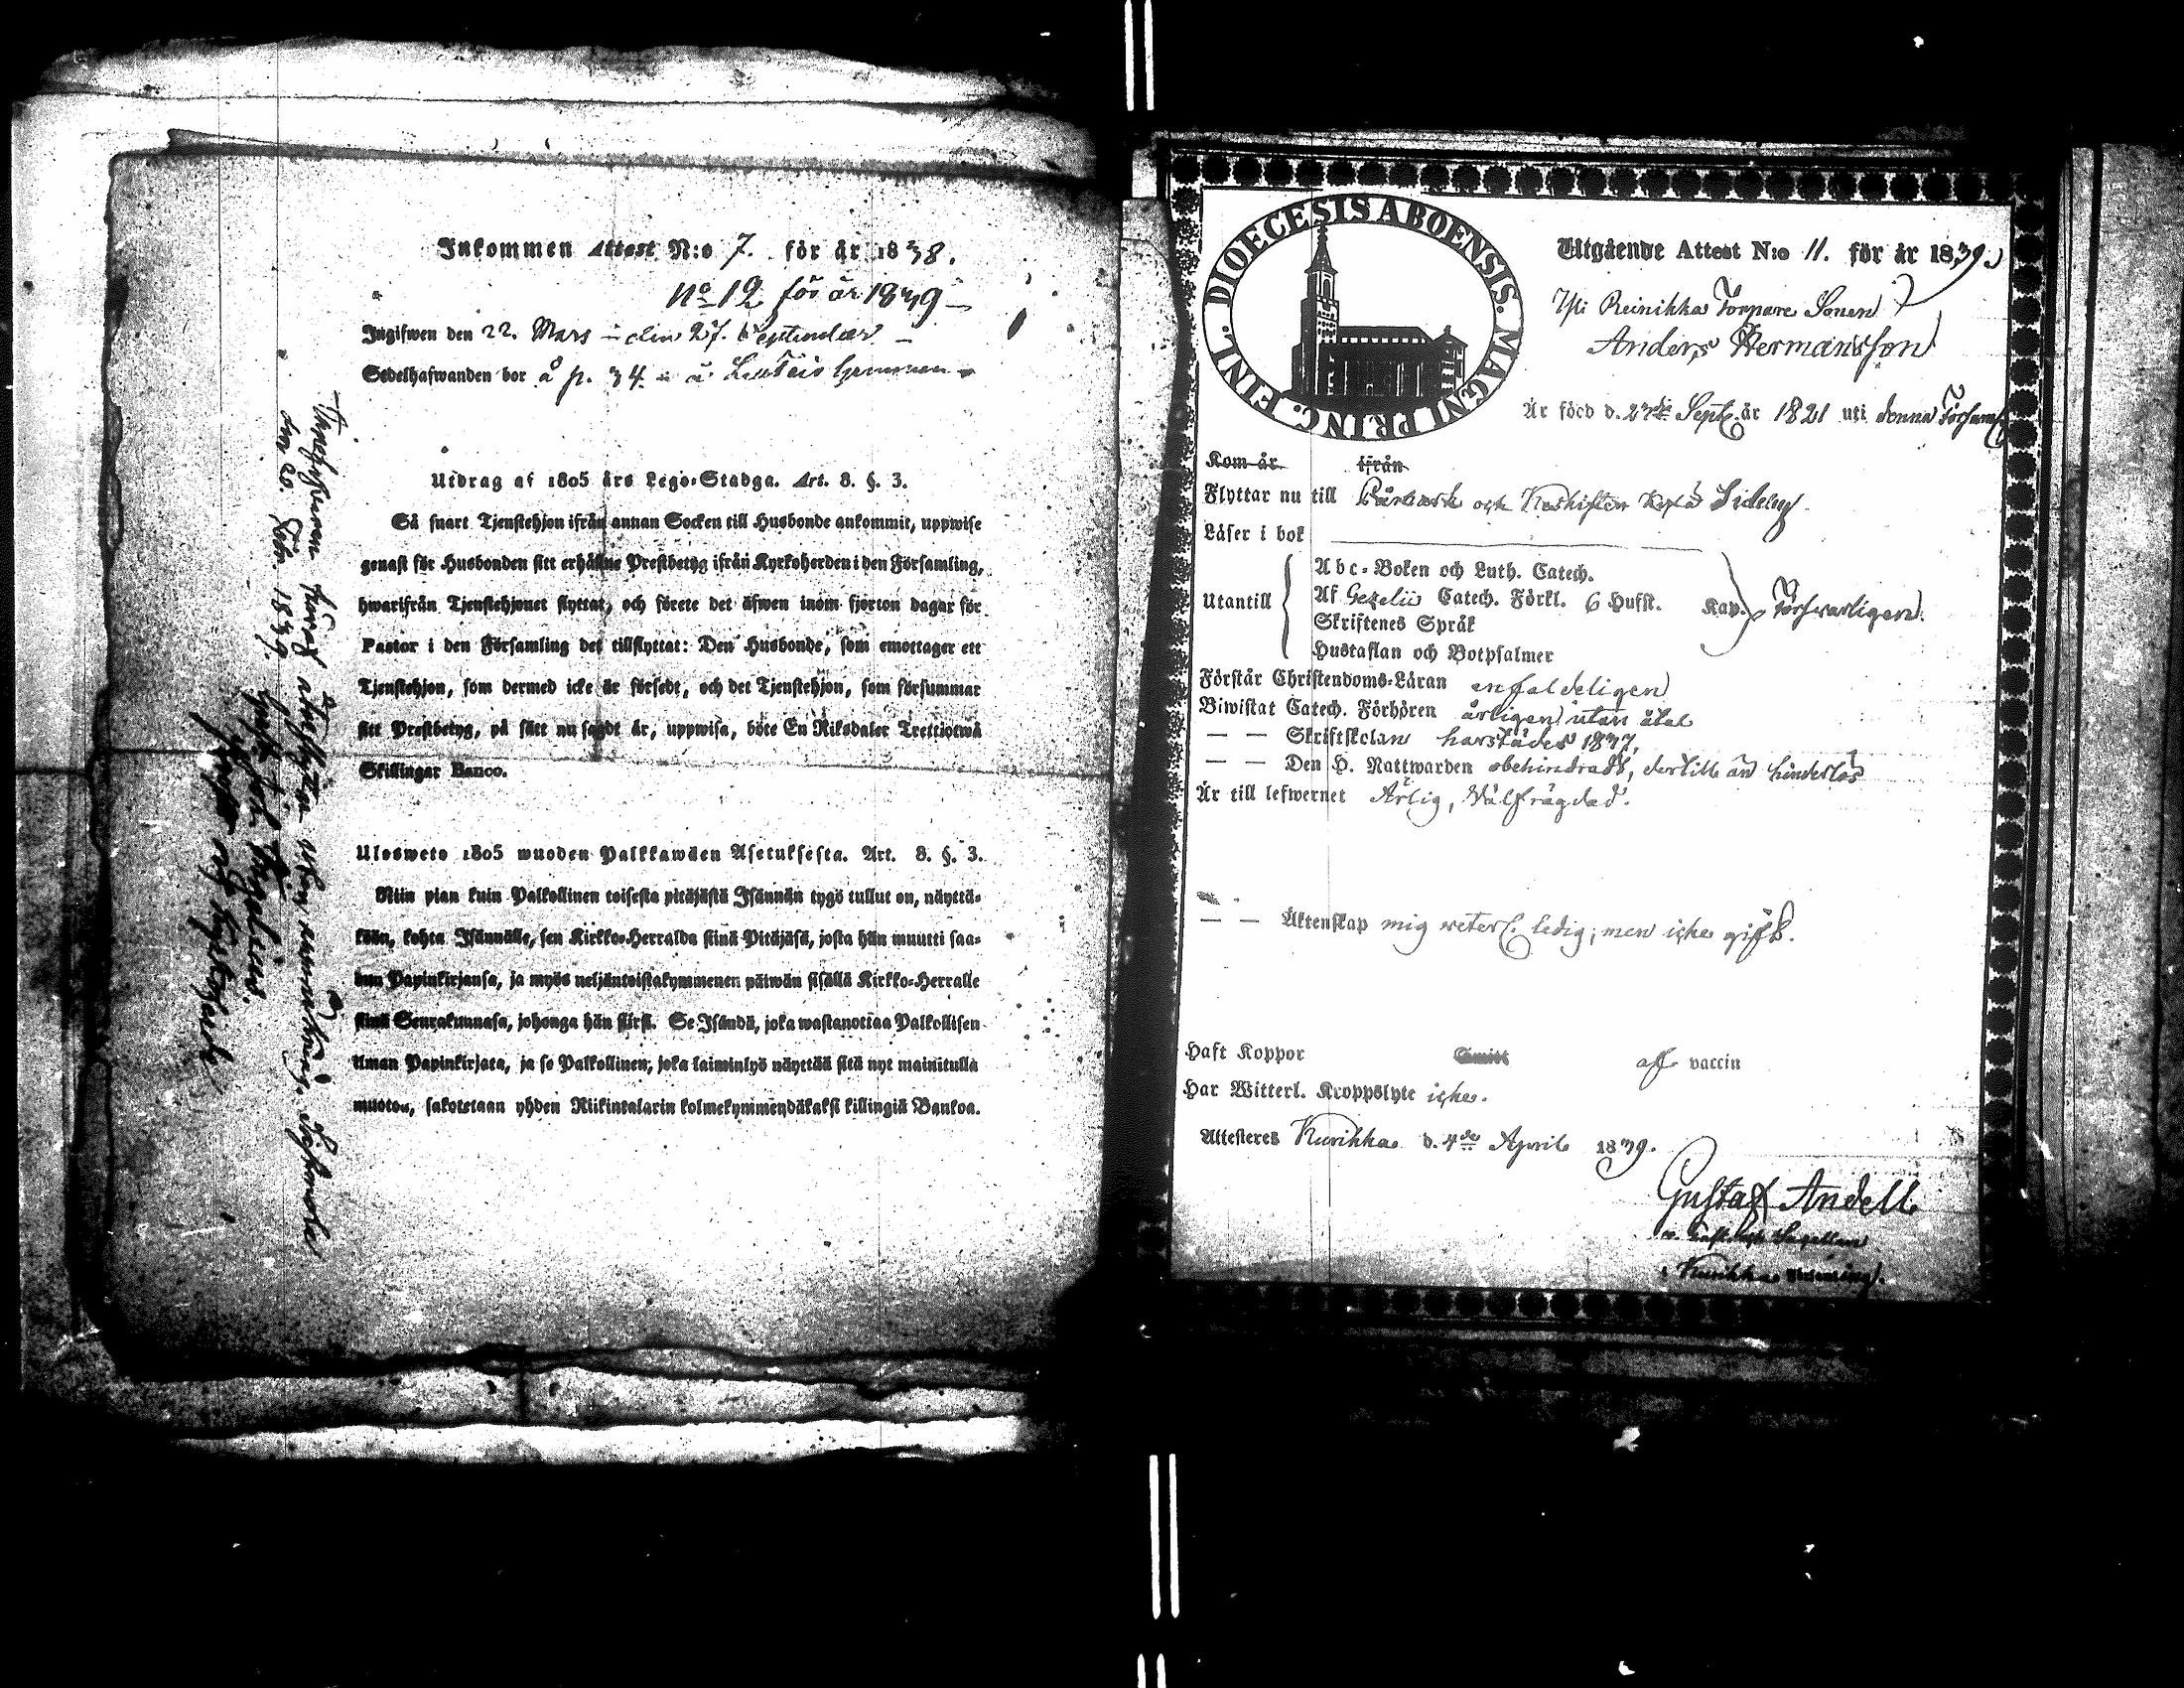 Inkommen Attest N:o 7. för år 1838.
No 12 för år 1839
Ingifwen den 22. Mars – den 27. September –
Sedelhafwanden bor å p. 34
Utdrag af 1805 års Lego-Stadga. Art. 8. §. 3.
Så snart Tjenstehjon ifrån annan Socken till Husbonde ankommit, uppwise
genast för Husbonden sitt erhållne Prestbetyg ifrån Kyrkoherden i den Församling,
hwarifrån Tjenstehjonet flyttat, och förete det äfwen inom fjorton dagar för
Pastor i den Församling det tillflyttat: Den Husbonde, som emottager ett
Tjenstehjon, som dermed icke är försedt, och det Tjenstehjon, som försummar
sitt Prestbetyg, på sätt nu sagdt är, uppwisa, böte En Riksdaler Trettiotwå
Skillingar Banco.
Ulosweto 1805 wuoden Palkkawäen Asetuksesta. Art. 8. §. 3.
Niin pian kuin Palkollinen toisesta pitäjästä Isännän tygö tullut on, näyttä-
kään, kohta Isännälle, sen Kirkko-Herralda siinä Pitäjäsä, josta hän muutti saa-
dun Papinkirjansa, ja myös neljäntoistakymmenen päiwän sisällä Kirkko-Herralle
siinä Seurakunnasa, johonga hän siirsi. Se Isändä, joka wastanottaa Palkollisen
ilman Papinkirjata, ja se Palkollinen, joka laiminlyö näyttää sitä nyt mainitulla
muoton, sakotetaan yhden Riikintalarin kolmekymmendäkaksi killingiä Bankoa.
den 20. Febr. 1839.
DIOECESIS ABOENSIS. MAGNI PRINC. FINL.
Utgående Attest N:o 11. för år 1839.
Reinikka Torpare Sonen
Anders Hermansson
Är född d. 27de Sept. år 1821 uti denna Församl.
Kom år ifrån
Flyttar nu till och Sideby.
Läser i bok
Utantill
Abc-Boken och Luth. Catech.
Af Gezelii Catech. Förkl. 6 Hufst. Kap. Försvarligen.
Skriftenes Språk
Hustaflan och Botpsalmer
Förstår Christendoms-Läran enfaldeligen
Biwistat Catech. Förhören årligen utan åtal
— — Skriftskolan härstädes 1837,
— — Den H. Nattwarden obehindradt, dertill än hinderlös
Är till lefwernet Ärlig, Välfrägdad.
— — Äktenskap mig veterl. ledig; men icke gift.
Haft Koppor Smitt af vaccin
Har Witterl. Kroppslyte icke.
Attesteres Kurikka d. 4de April 1839.
Gustaf Andell
Kurikka Församling.